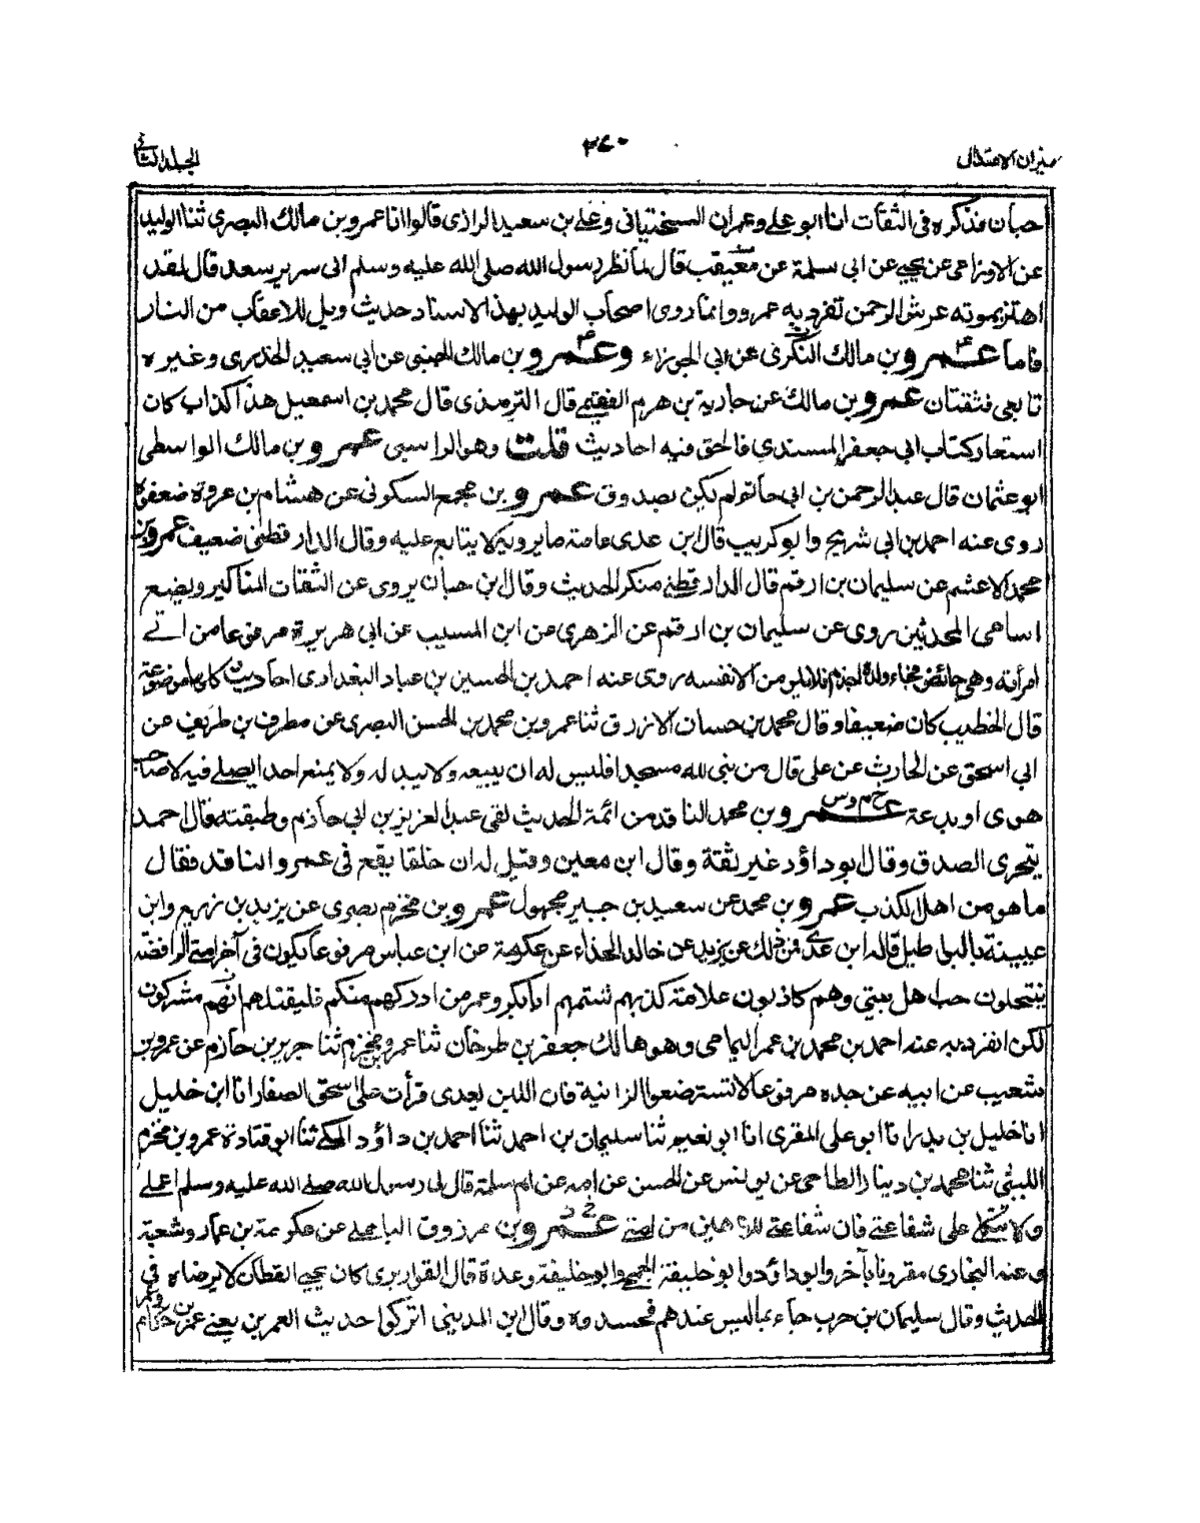 ميزان الاعتدال
٣٤٠
الجلد الثانى
حبان فذكره فى الثقات انا ابو على وعمران السختيانى وعلى بن سعيد الرازى قالوا انا عمرو بن مالك البصرى ثنا الوليد
عن الاوزاعى عن يحيى عن ابى سلمة عن معيقب قال لما نظر رسول الله صلى الله عليه وسلم الى سرير سعد قال لقد
اهتز بموته عرش الرحمن تفرد به عمرو وانما روى اصحاب الوليد بهذا الاسناد حديث ويل للاعقاب من النار
فاما عمرو بن مالك النكرى عن ابى الجوزاء وعمرو بن مالك الجنبى عن ابى سعيد الخدرى وغيره
تابعى فثقتان عمرو بن مالك عن جارية بن هرم الفقيمى قال الترمذى قال محمد بن اسمعيل هذا كذاب كان
استعار كتاب ابى جعفر المسندى فالحق فيه احاديث قلت وهو الراسبى عمرو بن مالك الواسطى
ابو عثمان قال عبد الرحمن بن ابى حاتم لم يكن بصدوق عمرو بن مجمع السكونى عن هشام بن عروة ضعفوه
روى عنه احمد بن ابى شريح وابو كريب قال ابن عدى عامة ما يرويه لا يتابع عليه وقال الدارقطنى ضعيف عمرو بن
محمد الاعشم عن سليمان بن ارقم قال الدارقطنى منكر الحديث وقال ابن حبان يروى عن الثقات المناكير ويضع
اسامى المحدثين روى عن سليمان بن ارقم عن الزهرى عن ابن المسيب عن ابى هريرة مرفوعا من اتى
امرأته وهى حائض فجاء ولده اجذم فلا يلومن الا نفسه روى عنه احمد بن الحسين بن عباد البغدادى احاديث كلها موضوعة
قال الخطيب كان ضعيفا وقال محمد بن حسان الازرق ثنا عمرو بن محمد بن الحسن البصرى عن مطرف بن طريف عن
ابى اسحق عن الحارث عن على قال من بنى لله مسجدا فليس له ان يبيعه ولا يبدله ولا يمنع احدا يصلى فيه الا صاحب
هوى او بدعة عمرو بن محمد الناقد من ائمة الحديث لقى عبد العزيز بن ابى حازم وطبقته قال احمد
يتحرى الصدق وقال ابو داؤد غير ثقة وقال ابن معين وقيل له ان خلفا يقع فى عمرو الناقد فقال
ما هو من اهل الكذب عمرو بن محمد عن سعيد بن جبير مجهول عمرو بن مخرم بصرى عن يزيد بن زريع وابن
عيينة بالبواطيل قاله ابن عدى فمن ذلك عن يزيد عن خالد الحذاء عن عكرمة عن ابن عباس مرفوعا يكون فى آخر امتى الرافضة
ينتحلون حب اهل بيتى وهم كاذبون علامة كذبهم شتمهم ابا بكر وعمر من ادركهم منكم فليقتلهم انهم مشركون
لكن انفرد به عنه احمد بن محمد بن عمر اليمامى وهو هالك جعفر بن طرخان ثنا عمرو بن مخرم ثنا جرير بن حازم عن عمرو بن
شعيب عن ابيه عن جده مرفوعا لا تسترضعوا الزانية فان اللبن يعدى قرأت على اسحق الصفار انا ابن خليل
انا خليل بن بدر انا ابو على المقرى انا ابو نعيم ثنا سليمان بن احمد ثنا احمد بن داؤد المكى ثنا ابو قتادة عمرو بن مخرم
الليثى ثنا محمد بن دينار الطاحى عن يونس عن الحسن عن امه عن ام سلمة قال لى رسول الله صلى الله عليه وسلم اعملى
ولا تتكلى على شفاعتى فان شفاعتى للاهين من امتى عمرو بن مرزوق الباهلى عن عكرمة بن عمار وشعبة
وعنه البخارى مقرونا بآخر وابو داؤد وابو خليفة الجمحى وابو خليفة وعدة قال القواريرى كان يحيى القطان لا يرضاه فى
الحديث وقال سليمان بن حرب جاء بما ليس عندهم فحسدوه وقال ابن المدينى اتركوا حديث العمرين يعنى عمرو بن حكام